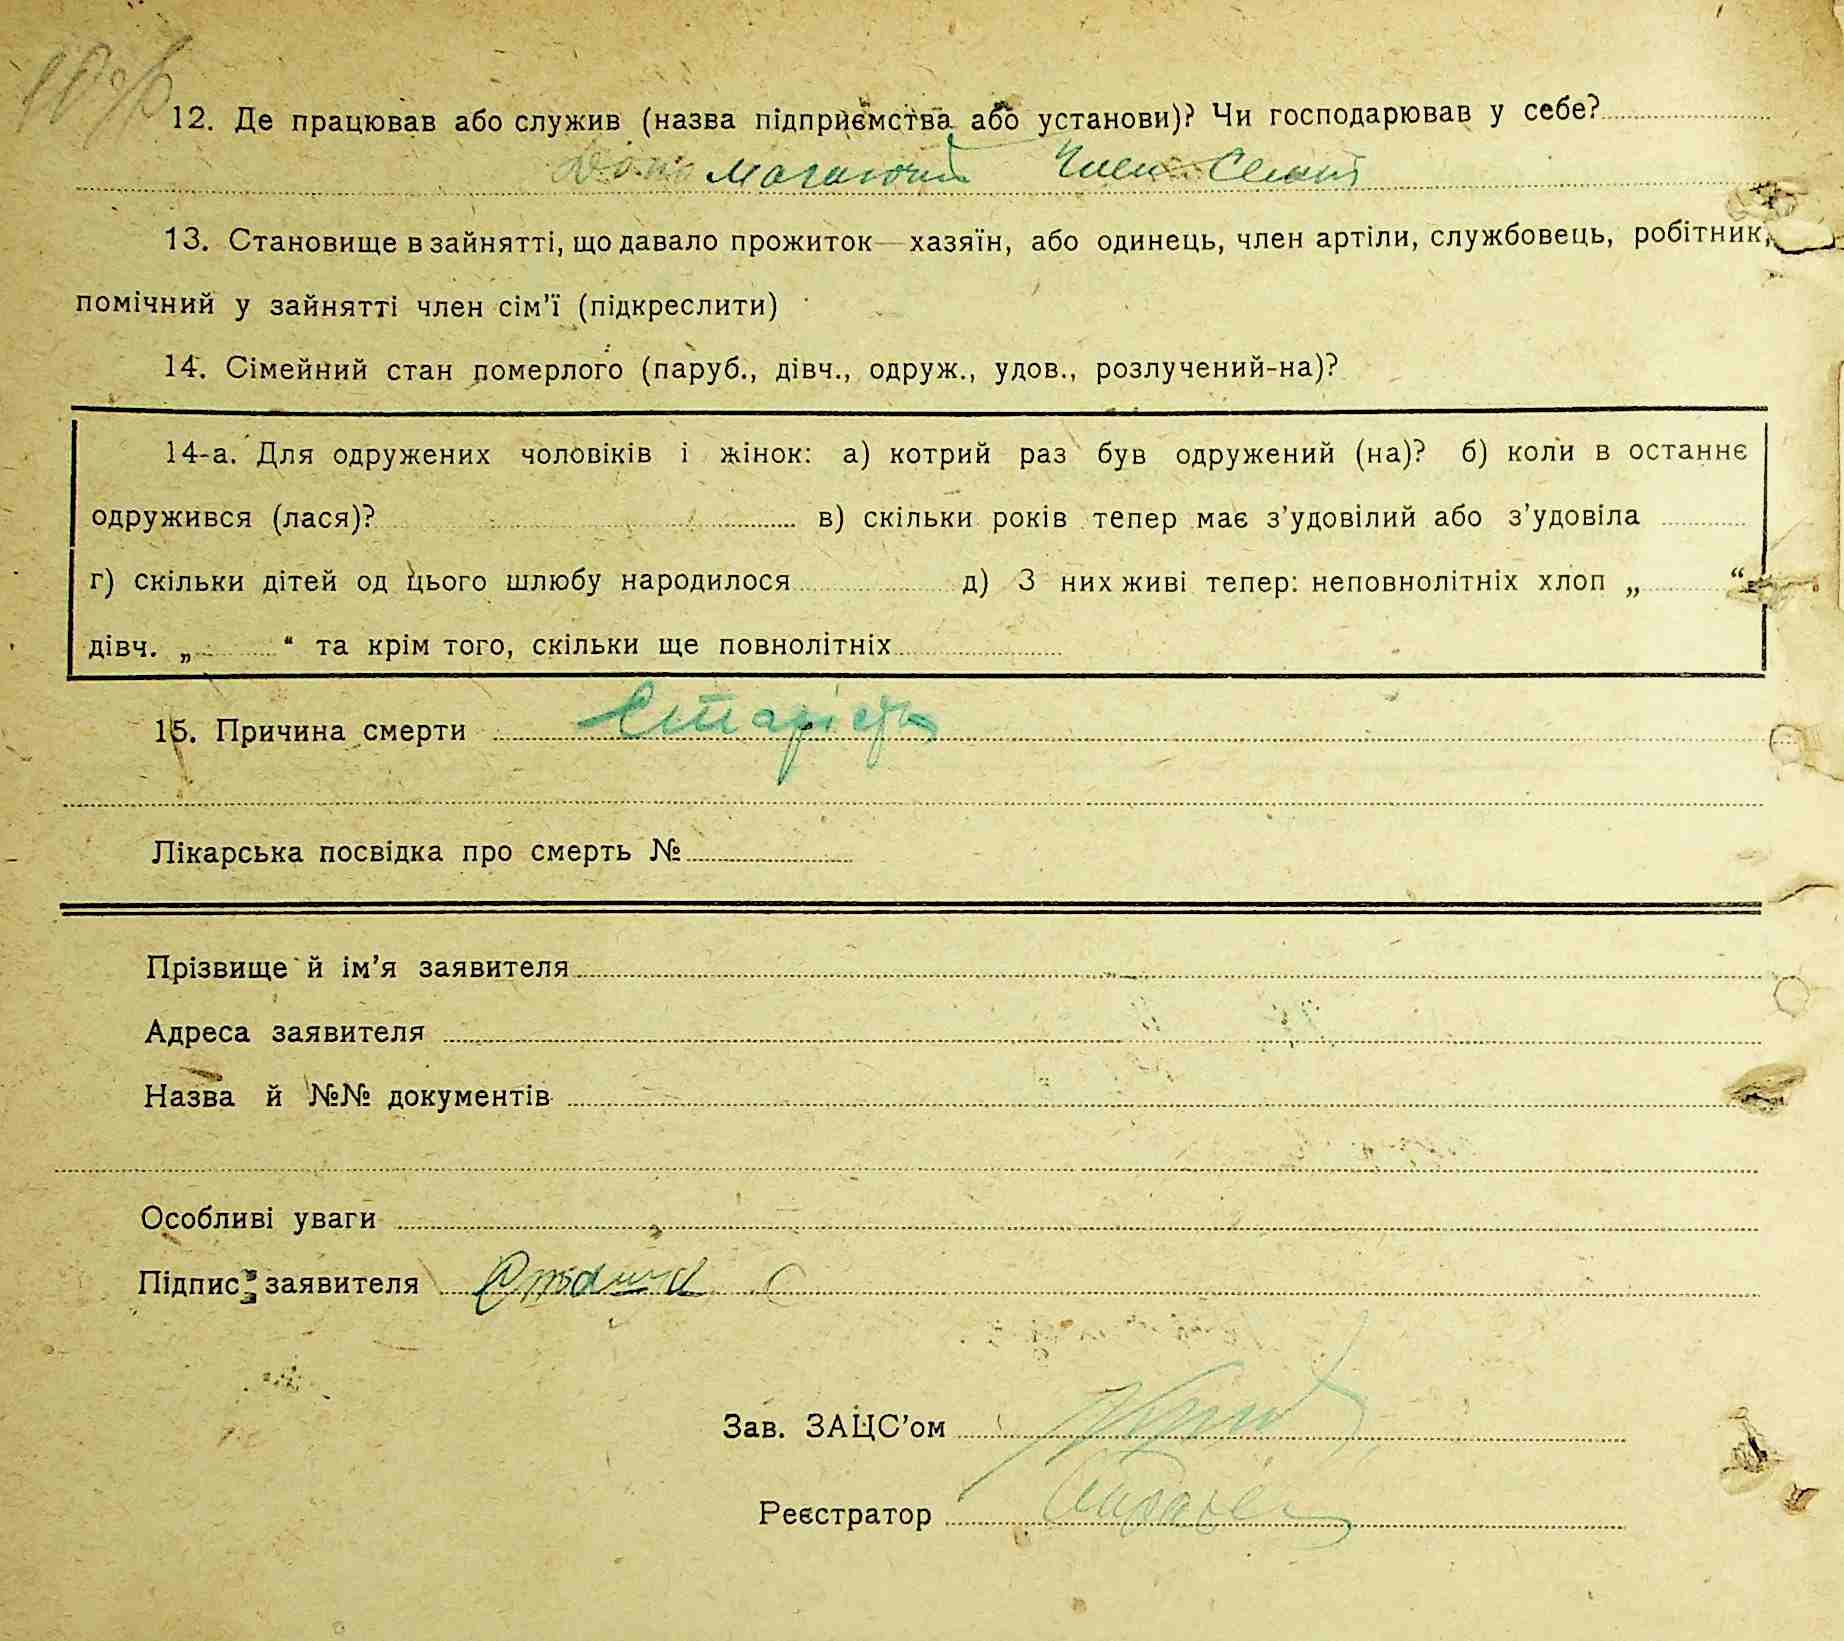 12. Де працював або служив (назва підприємства або установи)? Чи господарював у себе?
Допомагаючий Член Семьи
13. Становище в зайнятті, що давало прожиток—хазяїн, або одинець, член артіли, службовець, робітник,
помічний у зайнятті член сім'ї (підкреслити)
14. Сімейний стан померлого (паруб., дівч., одруж., удов., розлучений-на)?
14-а. Для одружених чоловіків і жінок: а) котрий раз був одружений (на)? б) коли в останнє
одружився (лася)? в) скільки років тепер має з'удовілий або з'удовіла
г) скільки дітей од цього шлюбу народилося д) З них живі тепер: неповнолітніх хлоп „ “
дівч. „ “ та крім того, скільки ще повнолітніх
15. Причина смерти Старість
Лікарська посвідка про смерть №
Прізвище й ім'я заявителя
Адреса заявителя
Назва й №№ документів
Особливі уваги
Підпис заявителя
Зав. ЗАЦС'ом
Реєстратор